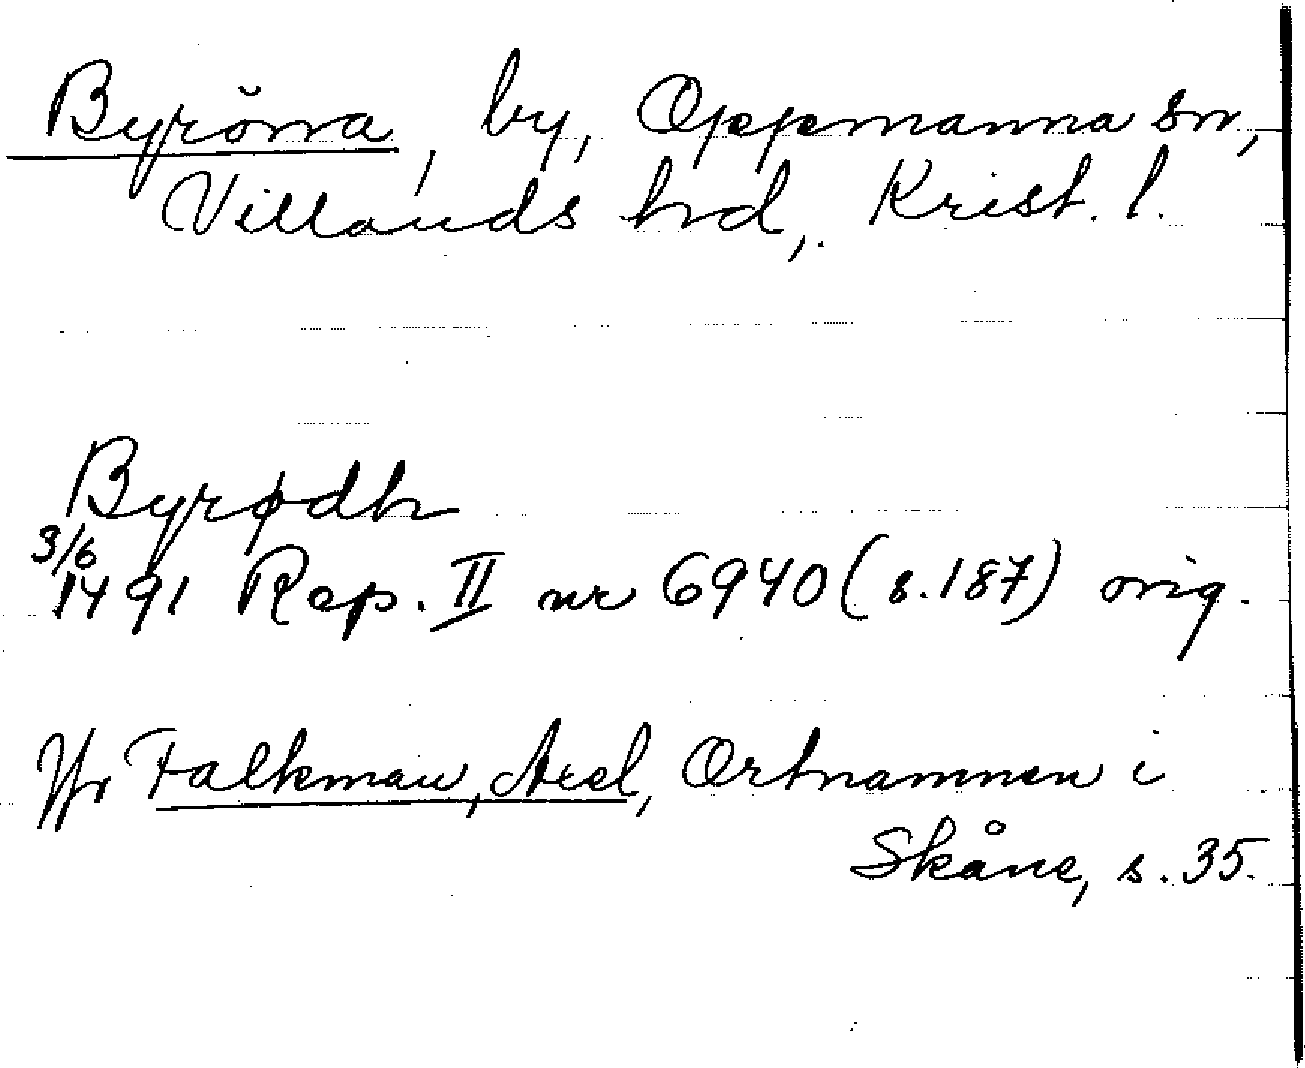 Byröna, by, Oppmanna sn,
Villands hd, Krist. l.
Byrødh
3/6
1491 Rep. II nr 6940 (s. 187) orig.
Jfr Falkman, Axel, Ortnamnen i
Skåne, s. 35.